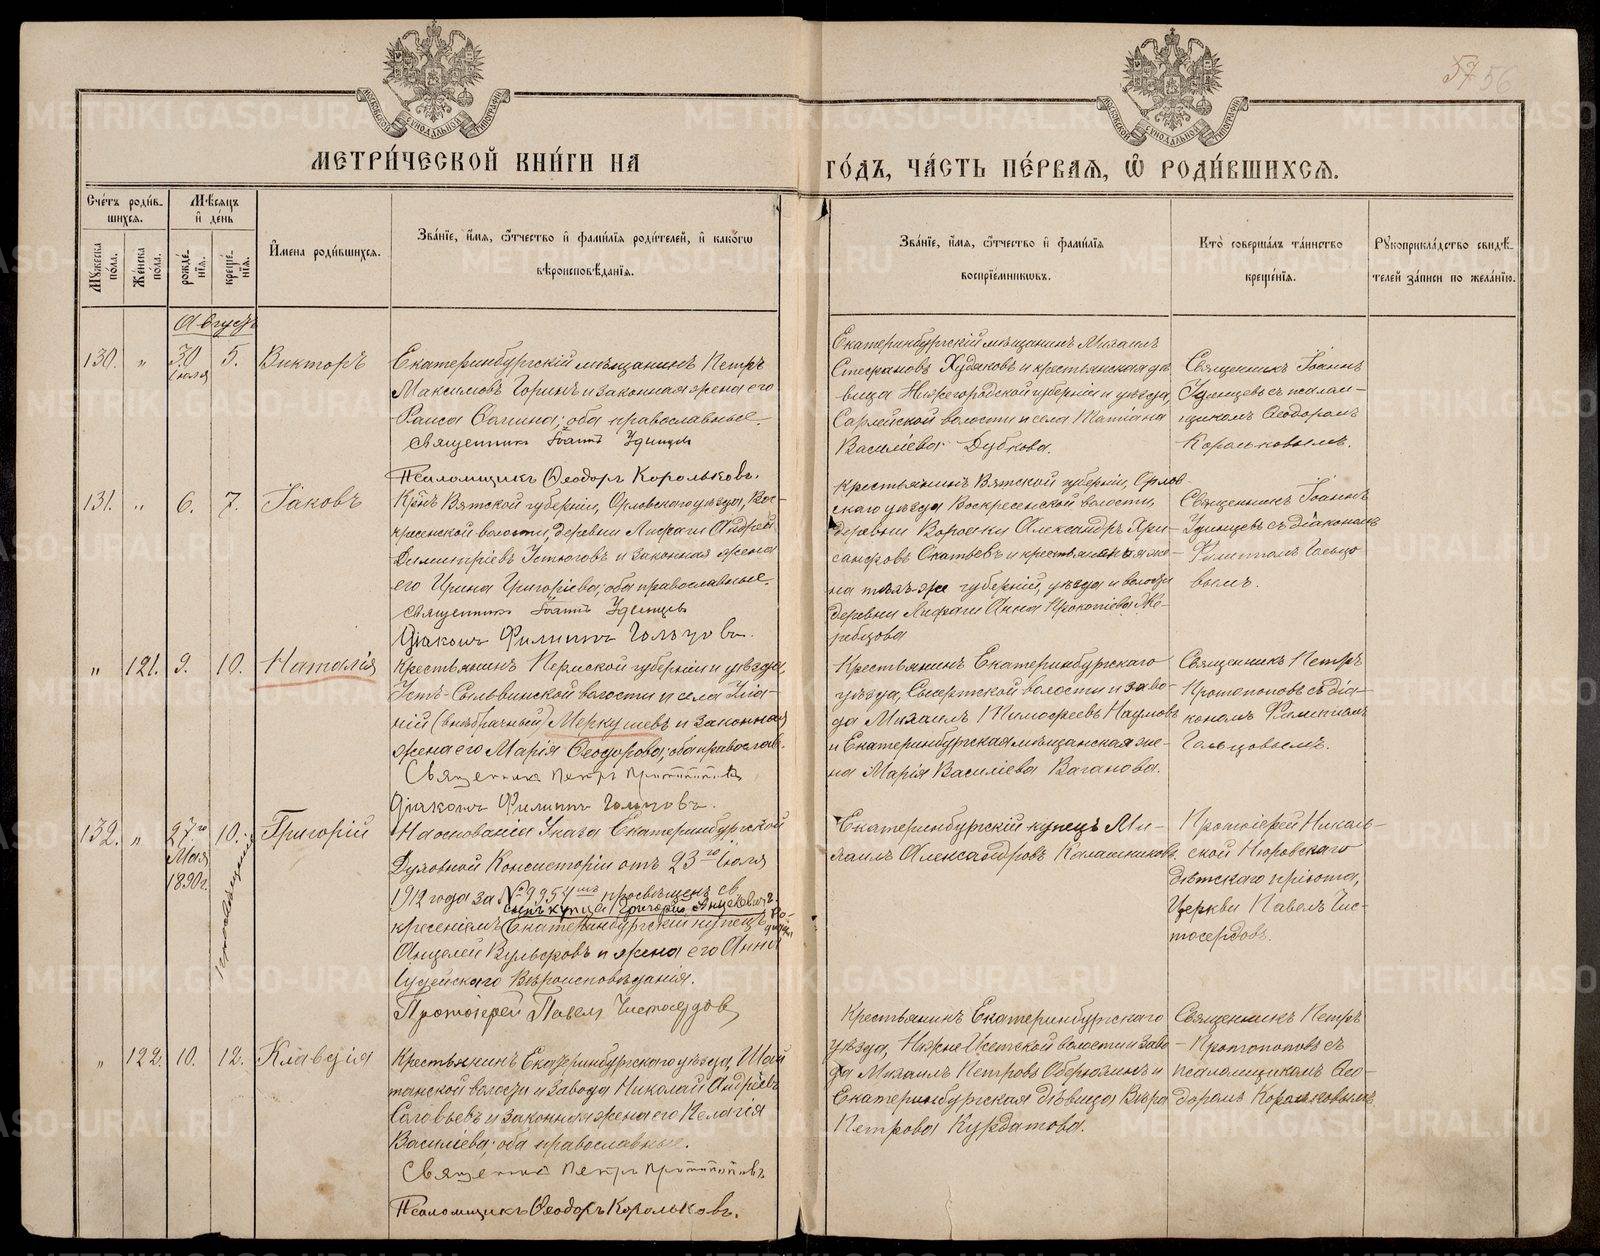 57 56
МОСКОВСКОЙ СУНОДАЛЬНОЙ ТИПОГРАФІИ
МОСКОВСКОЙ СУНОДАЛЬНОЙ ТИПОГРАФІИ
МЕТРИ́ЧЕСКОЙ КНИ́ГИ НА
ГО́ДЪ, ЧА́СТЬ ПЕ́РВАѦ, Ѽ РОДИ́ВШИХСѦ.
Сче́тъ роди́в-
шихсѧ.
Мꙋ́жеска по́ла.
Же́нска по́ла.
Мѣ́сѧцъ
и҆ де́нь
рожде́нїѧ.
креще́нїѧ.
И҆́мена роди́вшихсѧ.
Зва́нїе, и҆́мѧ, ѻ҆́тчество и҆ фами́лїѧ роди́телей, и҆ како́гѡ
вѣроисповѣ́данїѧ.
Зва́нїе, и҆́мѧ, ѻ҆́тчество и҆ фами́лїѧ
воспрїе́мникѡвъ.
Кто̀ соверша́лъ та́инство
креще́нїѧ.
Рꙋкоприкла́дство свидѣ́-
телей за́писи по жела́нїю.
Августъ
130. " 30 Іюля 5. Викторъ
Екатеринбургскій мѣщанинъ Петръ
Максимовъ Горинъ и законная жена его
Раиса Фомина; оба православные.
Священникъ Іоаннъ Удинцевъ
Псаломщикъ Ѳеодоръ Корольковъ.
Екатеринбургскій мѣщанинъ Михаилъ
Стефановъ Худяковъ и крестьянская дѣ-
вица Нижегородской губерніи и уѣзда,
Сарлейской волости и села Татіана
Василіева Дубкова.
Священникъ Іоаннъ
Удинцевъ съ псалом-
щикомъ Ѳеодоромъ
Корольковымъ.
131. " 6. 7. Іаковъ
Кр-нъ Вятской губерніи, Орловскаго уѣзда, Вос-
кресенской волости, деревни Лифаги Андрей
Димитріевъ Устюговъ и законная жена
его Ирина Григоріева; оба православные.
Священникъ Іоаннъ Удинцевъ
Діаконъ Филиппъ Гольцовъ.
Крестьянинъ Вятской губерніи, Орлов-
скаго уѣзда Воскресенской волости,
деревни Александръ Хри-
санфовъ и крестьянская же-
на тѣхъ-же губерніи, уѣзда и волости
деревни Лифаги Анна Прокопіева Же-
ребцова
Священникъ Іоаннъ
Удинцевъ съ діакономъ
Филиппомъ Гольцо-
вымъ.
" 121. 9. 10. Наталія
Крестьянинъ Пермской губерніи и уѣзда,
Усть-Сылвинской волости и села
(внѣбрачный) Меркушевъ и законная
жена его Марія Ѳеодорова; оба православ.
Священникъ Петръ Протопоповъ
Діаконъ Филиппъ Гольцовъ.
Крестьянинъ Екатеринбургскаго
уѣзда, Сысертской волости и заво-
да Михаилъ Тимофеевъ Наумовъ
и Екатеринбургская мѣщанская же-
на Марія Василіева Ваганова.
Священникъ Петръ
Протопоповъ съ діа-
кономъ Филиппомъ
Гольцовымъ.
132. " 27го Мая 1890г. 10. Григорій
На основаніи Указа Екатеринбургской
Духовной Консисторіи отъ 23го Іюля
1912 года за № 9954мъ просвѣщенъ св.
сынъ купца Григорій Анцелевичъ
крещеніемъ (Екатеринбургскій купецъ
Анцелей Вульфовъ и жена его Анна
Іудейскаго Вѣроисповѣданія.
Протоіерей Павелъ Чистосердовъ
Екатеринбургскій купецъ Ми-
хаилъ Александровъ Калашниковъ.
Протоіерей Николь-
ской Нуровскаго
дѣтскаго пріюта,
Церкви Павелъ Чис-
тосердовъ.
" 122. 10. 12. Клавдія
Крестьянинъ Екатеринбургскаго уѣзда, Шай-
танской волости и завода Николай Андреевъ
Соловьевъ и законная жена его Пелагія
Василіева; оба православные.
Священникъ Петръ Протопоповъ
Псаломщикъ Ѳеодоръ Корольковъ.
Крестьянинъ Екатеринбургскаго
уѣзда, Нижне Исетской волости и заво-
да Михаилъ Петровъ Оберюхтинъ и
Екатеринбургская дѣвица Вѣра
Петрова Курдатова.
Священникъ Петръ
Протопоповъ съ
псаломщикомъ Ѳео-
доромъ Корольковымъ.
METRIKI.GASO-URAL.RU